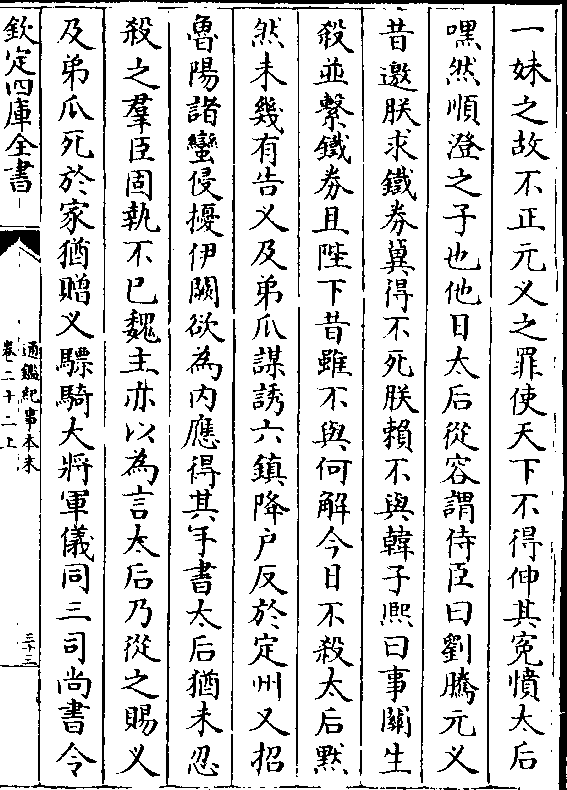 一妹之故不正元义之罪使天下不得伸其冤憤太后
嘿然順澄之子也他日太后從容謂侍臣曰劉騰元义
昔邀朕求鐵券冀得不死朕賴不與韓子熙曰事關生
殺並繫鐵券且陛下昔雖不與何解今日不殺太后黙
然未幾有告义及弟瓜謀誘六鎮降户反於定州又招
魯陽諸蠻侵擾伊闕欲為内應得其手書太后猶未忍
殺之羣臣固執不已魏主亦以為言太后乃從之賜义
及弟瓜死於家猶贈义驃騎大將軍儀同三司尚書令
欽定四庫全書
通鑑紀事本末
卷二十二上
三十三